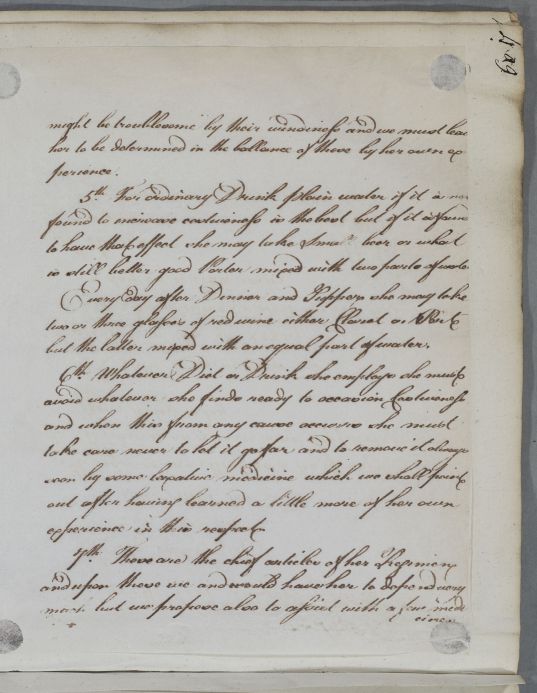 might be troublesome by their windiness and we must leav
her to be determined in the ballance of these by her own ex
perience.
5th. For ordinary Drink plain water if it is not
found to increase costiveness is the best but if it is found
to have that effect she may take Small beer or what
is still better good Porter mixed with two parts of water
Every day after Dinner and Supper she may take
two or three glasses of red wine either Claret or Port
but the latter mixed with an equal part of water.
6th. Whatever Diet or Drink she employs she must
avoid whatever she finds ready to occasion Costiveness
and when this from any cause occurs she must
take care never to let it go far and to remove it always
soon by some laxative medicine which we shall point
out after having learned a little more of her own
experience in this respect
7th. These are the chief articles of her Regimen
and upon these we and would have her to depend very
much but we propose also to assist with a few medi
cines